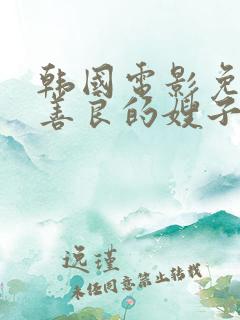 韩国电影免
善良的嫂子
逸瑾
未经同意禁止转载